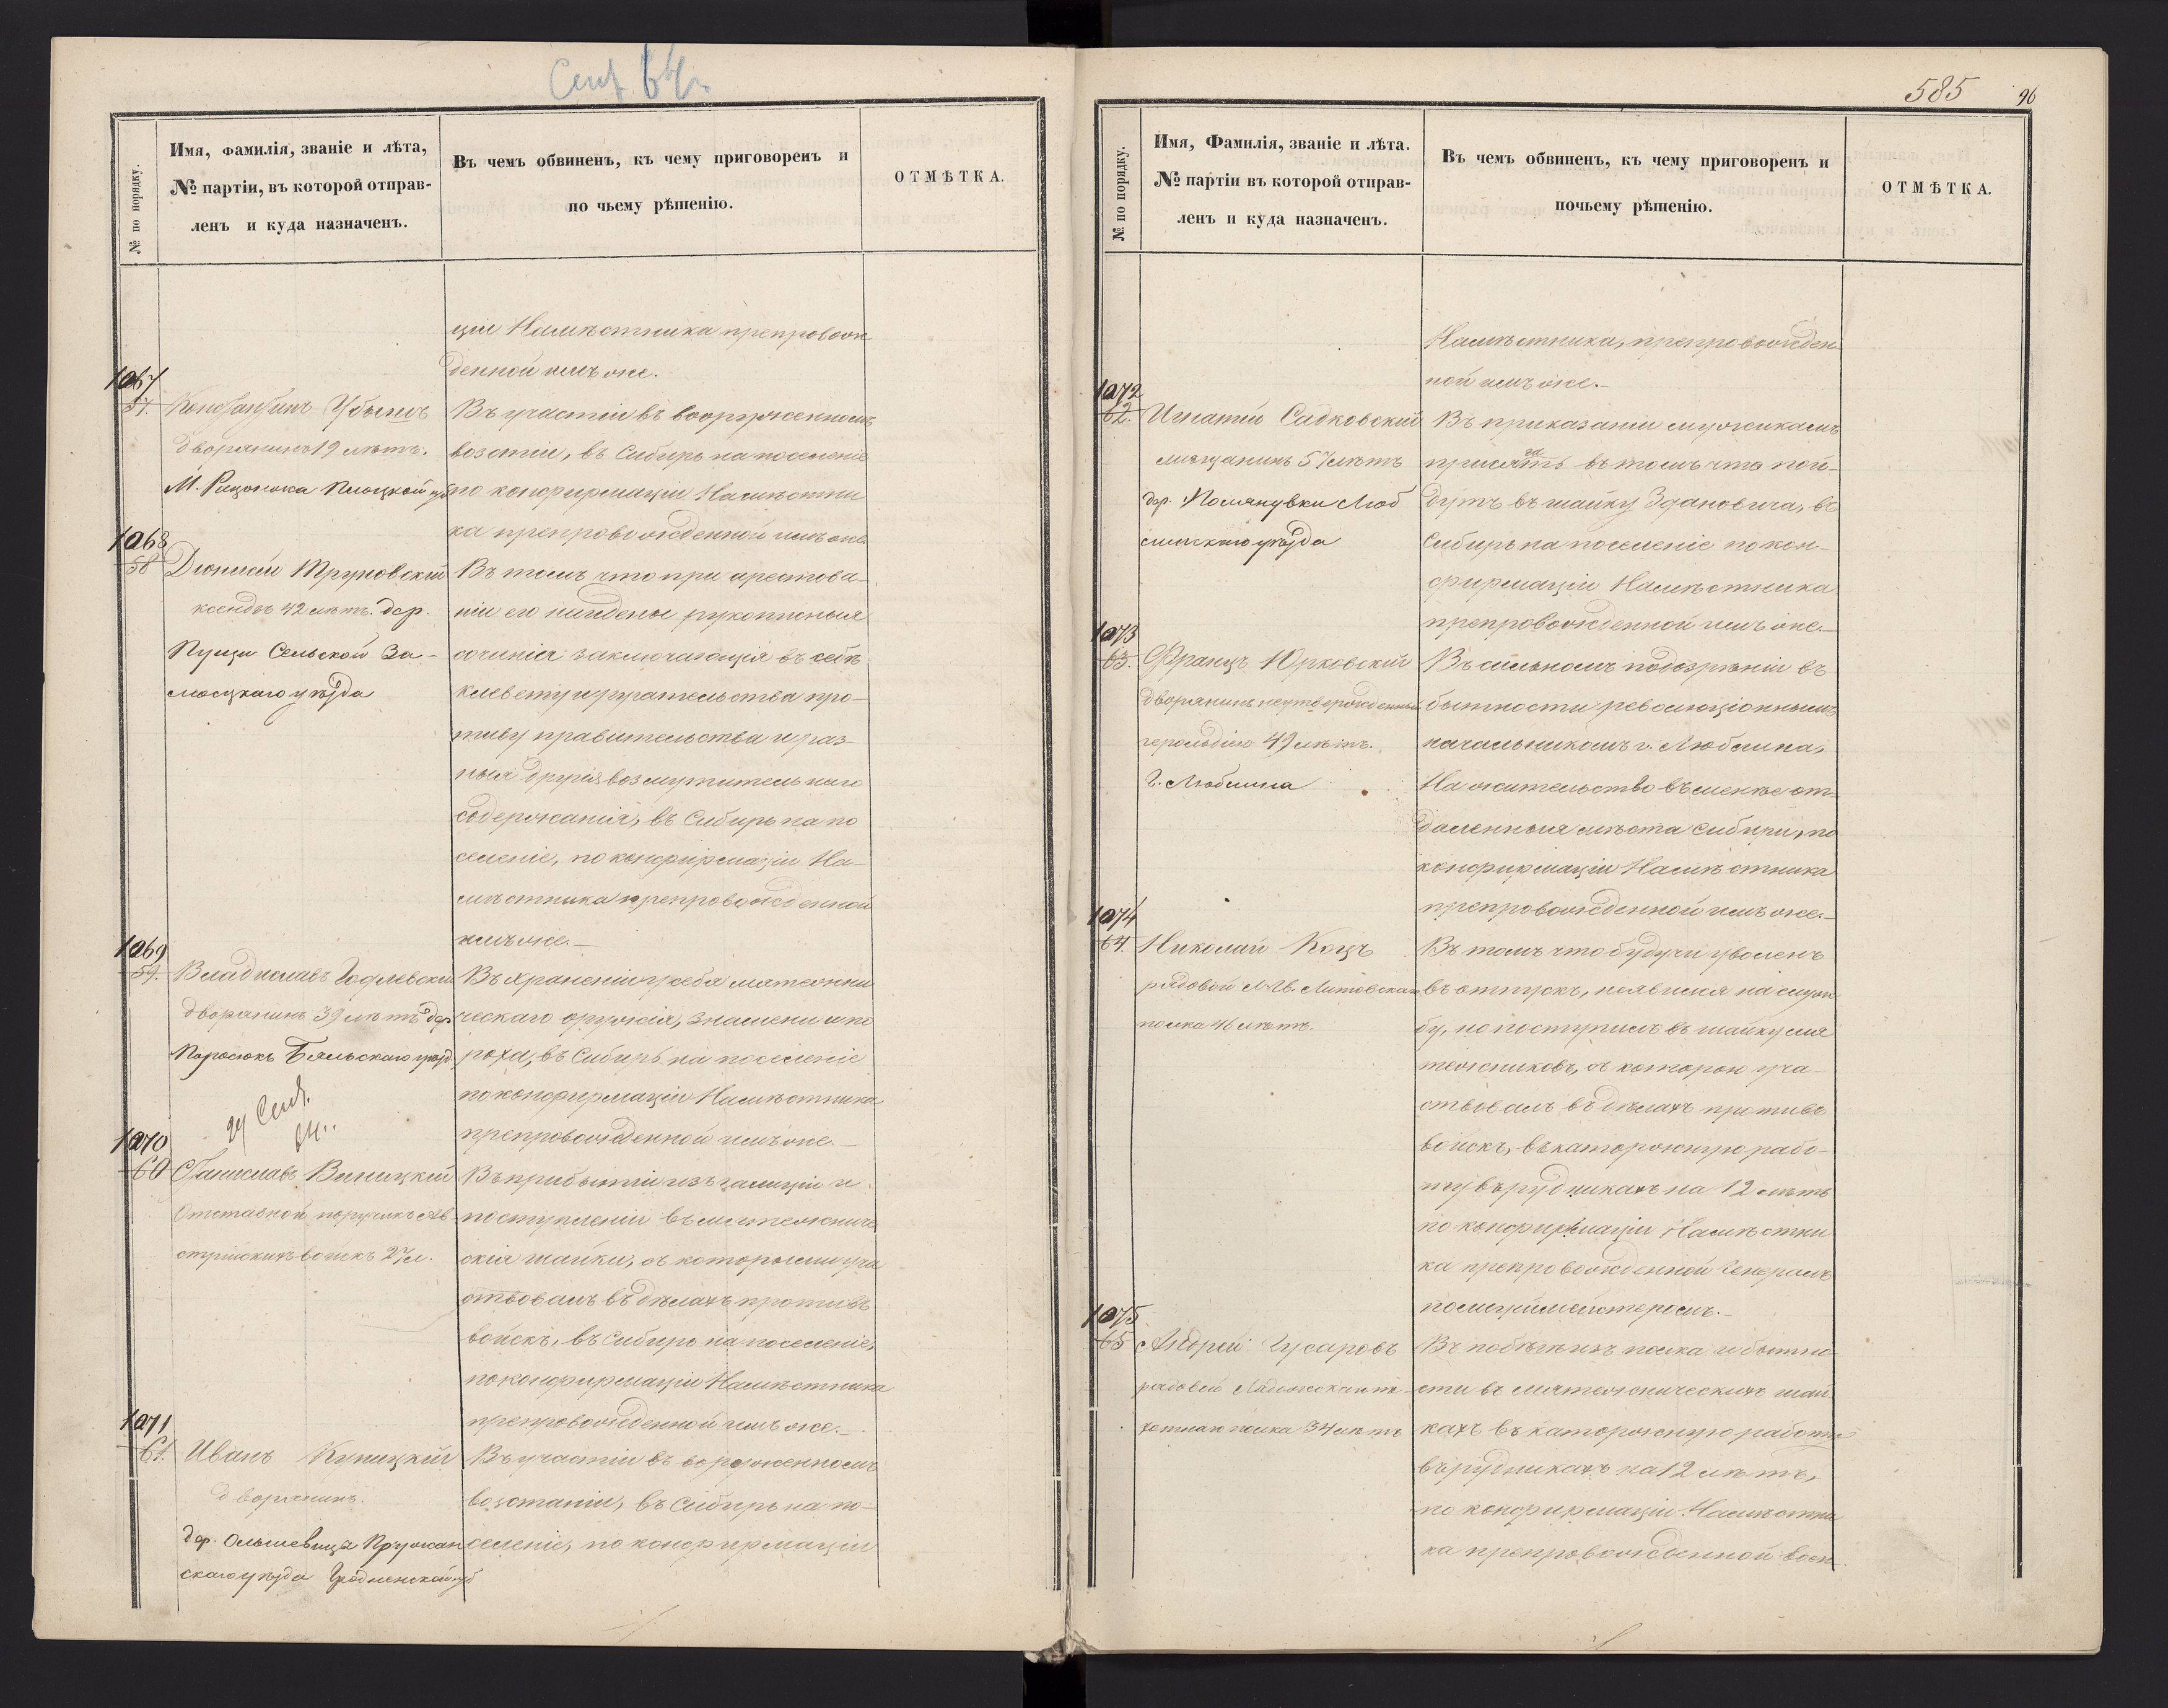 Сент. 64 г.
№ по порядку.
Имя, фамилія, званіе и лѣта,
№ партіи, въ которой отправ-
ленъ и куда назначенъ.
Въ чемъ обвиненъ, къ чему приговоренъ и
по чьему рѣшенію.
ОТМѢТКА.
ціи Намѣстника препровож
денной имъ же.
1067
57. Константинъ
дворянинъ 19 лѣтъ.
Въ участіи въ вооруженномъ
возстаніи, въ Сибирь на поселеніе
по конфирмаціи Намѣстни
ка препровожденной имъ же
1068
58 Діонисій Труновскій
ксендзъ 42 лѣтъ. дер.
Пущи Сельской За-
мосцкаго уѣзда
Въ томъ что при арестова-
ніи его найдены рукописныя
сочинія заключающія въ себѣ
клевету и ругательства про-
тиву правительства и раз-
ныя другія возмутительнаго
содержанія, въ Сибирь на по
селеніе, по конфирмаціи На-
мѣстника препровожденной
имъ же.
1069
59. Владиславъ Годлевскій
дворянинъ 39 лѣтъ дер
Поросюкъ Бяльскаго уѣзд.
Въ храненіи у себя мятежни
ческаго оружія, знамени и по
роха, въ Сибирь на поселеніе
по конфирмаціи Намѣстника
препровожденной имъ же.
Сент.
64.
1070
60 Станиславъ Виницкій
Отставной поручикъ Ав-
стрійскихъ войскъ 27 л.
Въ прибытіи изъ Галиціи и
поступленіи въ мятежниче
скія шайки, съ которыми уча
ствовалъ въ дѣлахъ противъ
войскъ, въ Сибирь на поселеніе,
по конфирмаціи Намѣстника
препровожденной имъ же.
1071
61. Иванъ Куницкій
дворянинъ.
дер. Ольшевица Пружан
скаго уѣзда Гродненской губ
Въ участіи въ воруженномъ
возстаніи, въ Сибирь на по-
селеніе, по конфирмаціи
585 96
№ по порядку.
Имя, Фамилія, званіе и лѣта.
№ партіи въ которой отправ-
ленъ и куда назначенъ.
Въ чемъ обвиненъ, къ чему приговоренъ и
почьему рѣшенію.
ОТМѢТКА.
Намѣстника, препровожден-
ной имъ же.
1072
62. Игнатій Садковскій
мѣщанинъ 57 лѣтъ
дер. Люб
линскаго уѣзда
Въ приказаніи мужикамъ
присягать въ томъ что пой-
дутъ въ шайку Здановича, въ
Сибирь на поселеніе по кон-
фирмаціи Намѣстника
препровожденной имъ же.
1073
63. Францъ Юрковскій
дворянинъ неутвержденный
герольдіею 49 лѣтъ.
г. Люблина
Въ сильномъ подозрѣніи въ
бытности революціоннымъ
начальникомъ г. Люблина,
На жительство въ менѣе от-
даленныя мѣста Сибири, по
конфирмаціи Намѣстника
препровожденной имъ же.
1074
64. Николай Коцъ
рядовой Л-Гв. Литовскаго
полка 46 лѣтъ.
Въ томъ что будучи уволенъ
въ отпускъ, неявился на служ
бу, но поступилъ въ шайку мя
тежниковъ, съ которою уча-
ствовалъ въ дѣлахъ противо
войскъ, въ каторжную рабо-
ту въ рудникахъ на 12 лѣтъ
по конфирмаціи Намѣстни
ка препровожденной Генералъ
полицімейстеромъ.
1075
65 Андрей Гусаровъ
рядовой Ладожскаго пѣ-
хотнаго полка 34 лѣтъ
Въ побѣгѣ изъ полка и бытно
сти въ мятежническихъ шай
кахъ въ каторжную работу
въ рудникахъ на 12 лѣтъ,
по конфирмаціи Намѣстни
ка препровожденной воен